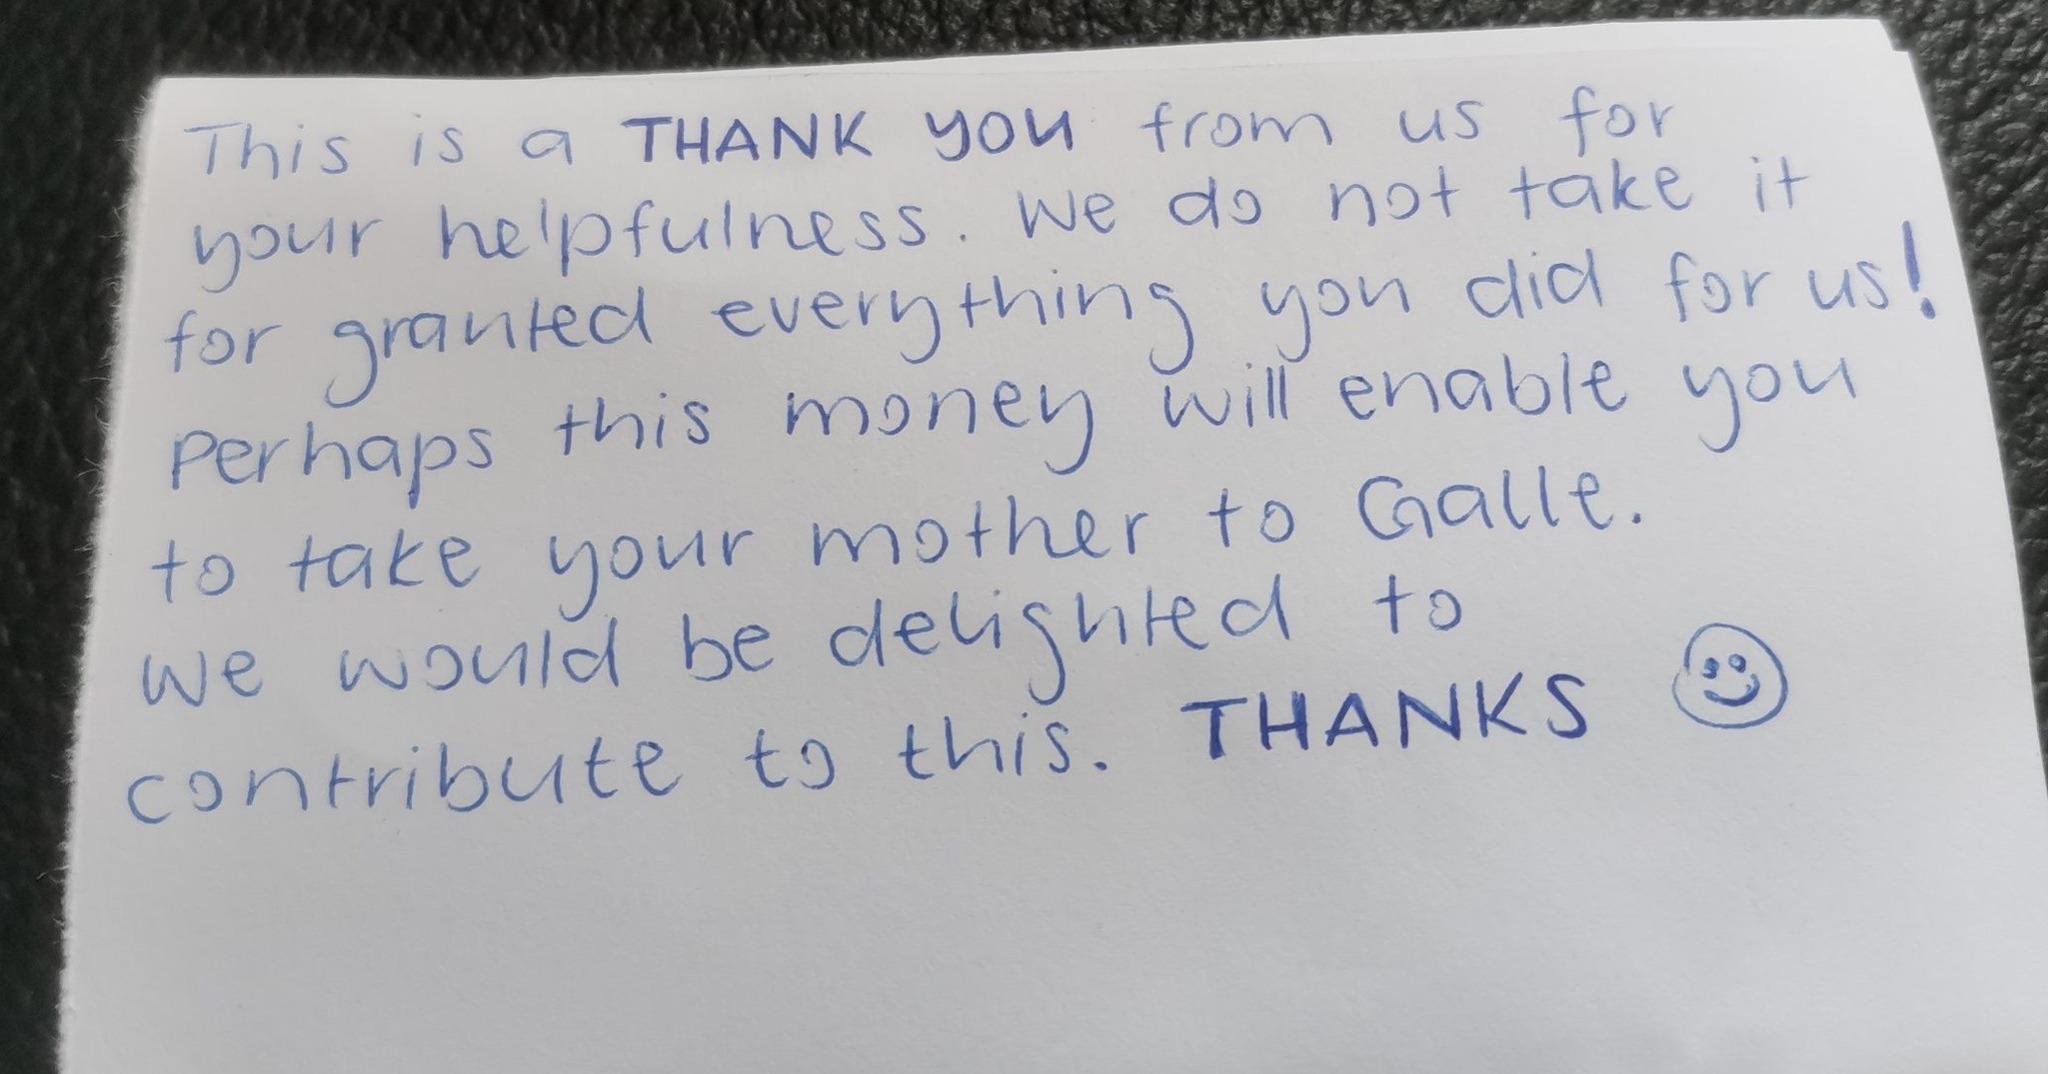 This is a THANK YOU from us for
your helpfulness. We do not take it
for granted everything you did for us!
Perhaps this money will enable you
to take your mother to Galle.
We would be delighted to
contribute to this. THANKS